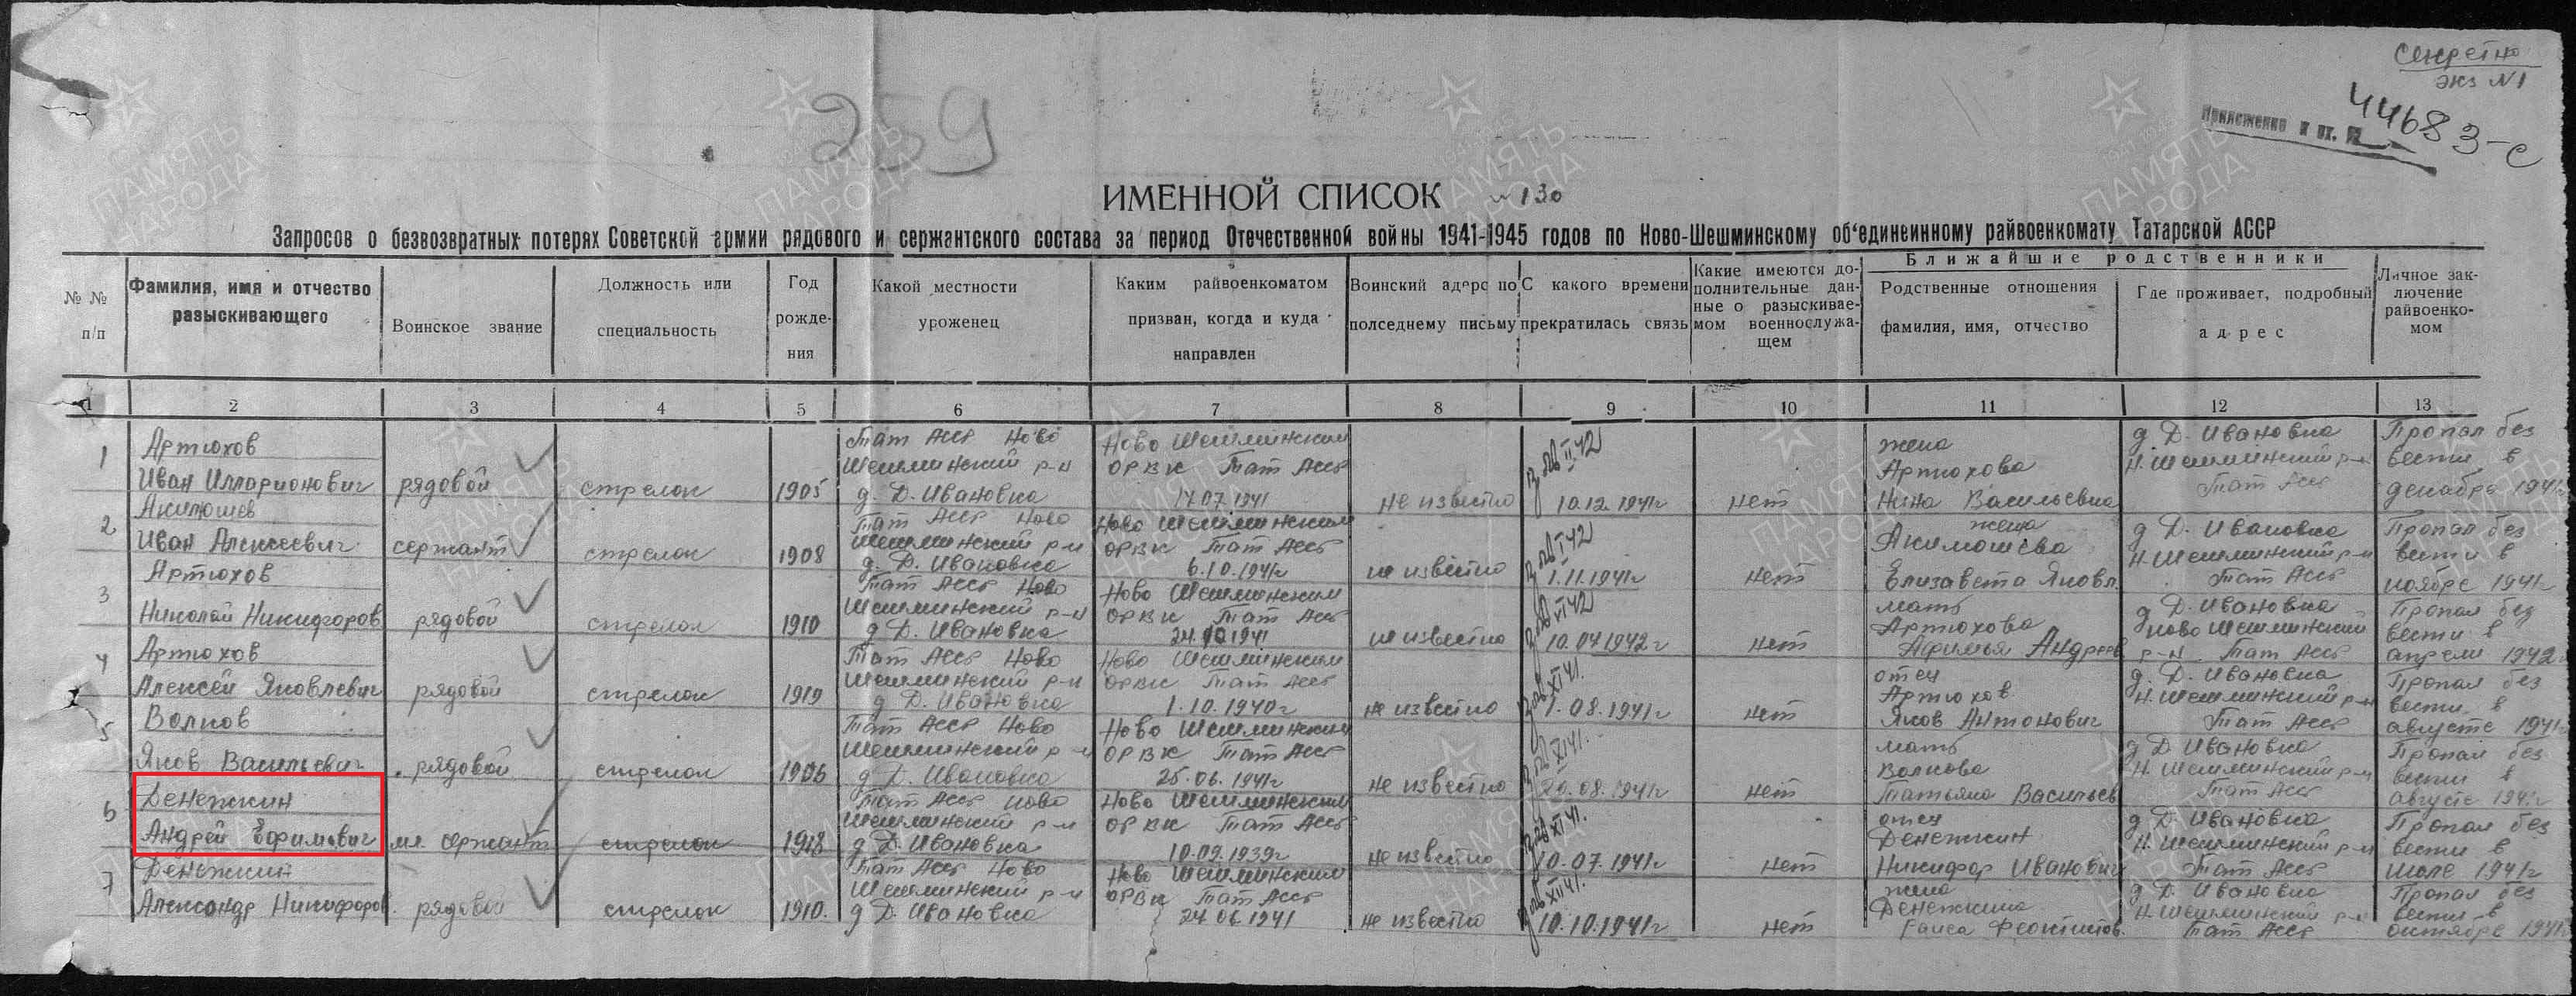 Секретно
экз N1
Приложение к вх. № 44683-с
259
ИМЕННОЙ СПИСОК №130
Запросов о безвозвратных потерях Советской армии рядового и сержантского состава за период Отечественной войны 1941-1945 годов по Ново-Шешминскому об‘единеинному райвоенкомату Татарской АССР
№ № п/п
Фамилия, имя и отчество разыскивающего
Воинское звание
Должность или специальность
Год рожде-ния
Какой местности уроженец
Каким райвоенкоматом призван, когда и куда направлен
Воинский адерс по полседнему письму
С какого времени прекратилась связь
Какие имеются до-полнительные дан-ные о разыскивае-мом военнослужа-щем
Ближайшие родственники
Родственные отношения фамилия, имя, отчество
Где проживает, подробный адрес
Личное зак-лючение райвоенко-мом
1 2 3 4 5 6 7 8 9 10 11 12 13
1 Артюхов Иван Илларионович рядовой стрелок 1905 Тат АССР Ново Шешминский р-н д. Д. Ивановка Ново Шешминским ОРВК Тат АССР 17.07.1941 не известно 10.12.1941г нет жена Артюхова Нина Васильевна д Д. Ивановка Н. Шешминский р-н Тат АССР Пропал без вести в декабре 1941г
2 Акимошев Иван Алексеевич сержант стрелок 1908 Тат АССР Ново Шешминский р-н д. Д. Ивановка Ново Шешминским ОРВК Тат АССР 6.10.1941г не известно 1.11.1941г нет жена Акимошева Елизавета Яковл. д Д. Ивановка Н. Шешминский р-н Тат АССР Пропал без вести в ноябре 1941г
3 Артюхов Николай Никифоров рядовой стрелок 1910 Тат АССР Ново Шешминский р-н д Д. Ивановка Ново Шешминским ОРВК Тат АССР не известно 10.04.1942г нет мать Артюхова Афимья Андреев д Д. Ивановка Ново Шешминский р-н Тат АССР Пропал без вести в апреле 1942г
4 Артюхов Алексей Яковлевич рядовой стрелок 1919 Тат АССР Ново Шешминский р-н д Д. Ивановка Ново Шешминским ОРВК Тат АССР 1.10.1940г не известно 1.08.1941г нет отец Артюхов Яков Антонович д. Д. Ивановка Н. Шешминский р-н Тат АССР Пропал без вести в августе 1941г
5 Волков Яков Васильевич рядовой стрелок 1906 Тат АССР Ново Шешминский р-н д Д. Ивановка Ново Шешминским ОРВК Тат АССР 25.06.1941г не известно 20.08.1941г нет мать Волкова Татьяна Васильев д Д Ивановка Н. Шешминский р-н Тат АССР Пропал без вести в августе 1941г
6 Денежкин Андрей Ефимович мл. сержант стрелок 1918 Тат АССР Ново Шешминский р-н д Д. Ивановка Ново Шешминским ОРВК Тат АССР 10.09.1939г не известно 10.07.1941г нет отец Денежкин Никифор Иванович д Д. Ивановка Н. Шешминский р-н Тат АССР Пропал без вести в июле 1941г
7 Денежкин Александр Никифоров. рядовой стрелок 1910. Тат АССР Ново Шешминский р-н д Д. Ивановка Ново Шешминским ОРВК Тат АССР 24.06.1941 не известно 10.10.1941г нет жена Денежкина Раиса Феоктистов. д Д. Ивановка Н. Шешминский р-н Тат АССР Пропал без вести в октябре 1941г
ПАМЯТЬ НАРОДА